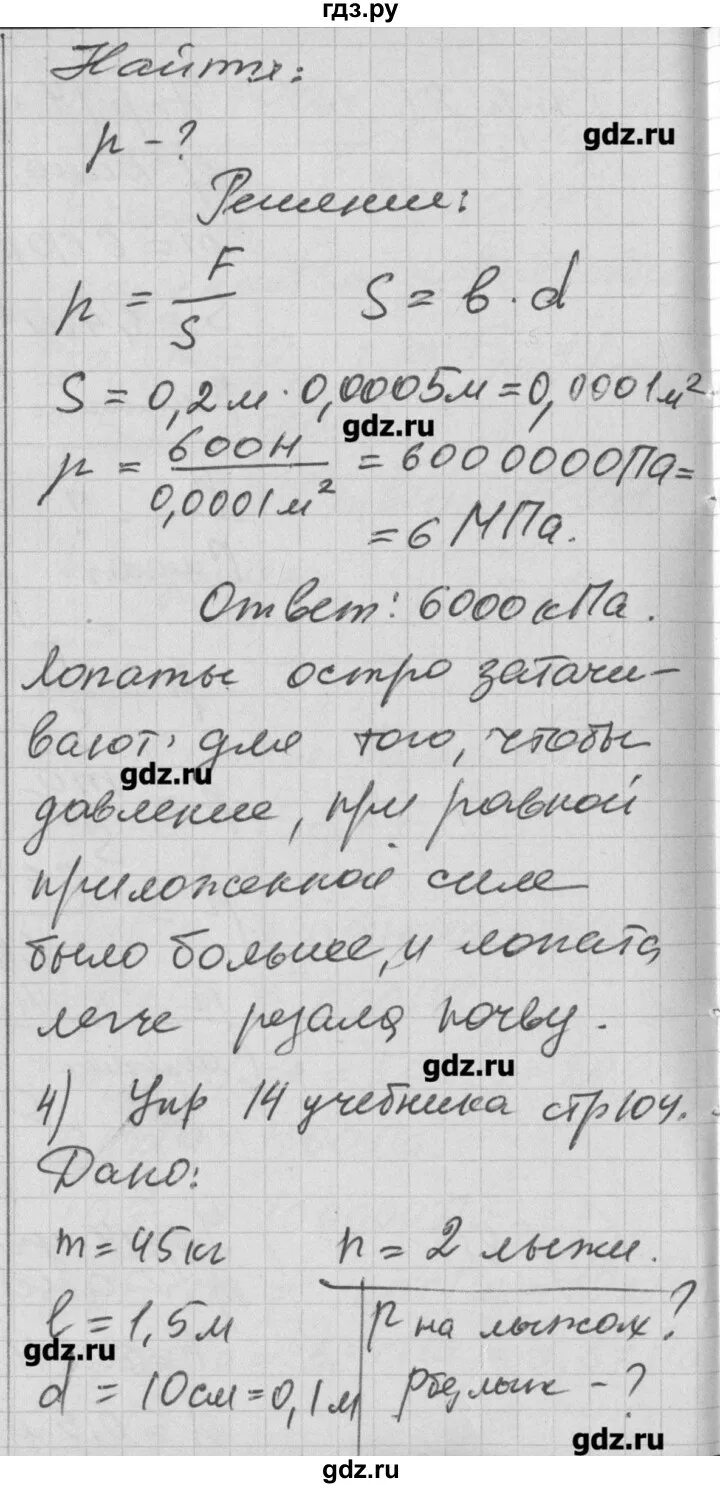 гдз.ру
Найти:
p - ?
gdz.ru
Решение:
p = F/S   S = b · d
S = 0,2 м · 0,0005 м = 0,0001 м²
gdz.ru
p = 600 Н / 0,0001 м² = 6000000 Па =
= 6 МПа.
Ответ: 6000 кПа.
Лопаты остро затачи-
вают для того, чтобы
gdz.ru
давление, при равной
приложенной силе
было больше, и лопата
легче резала почву.
gdz.ru
4) Упр 14 учебника стр 104.
Дано:
m = 45 кг   n = 2 лыжи.
l = 1,5 м   p на лыжах?
gdz.ru
d = 10 см = 0,1 м   p без лыж - ?
gdz.ru
gdz.ru